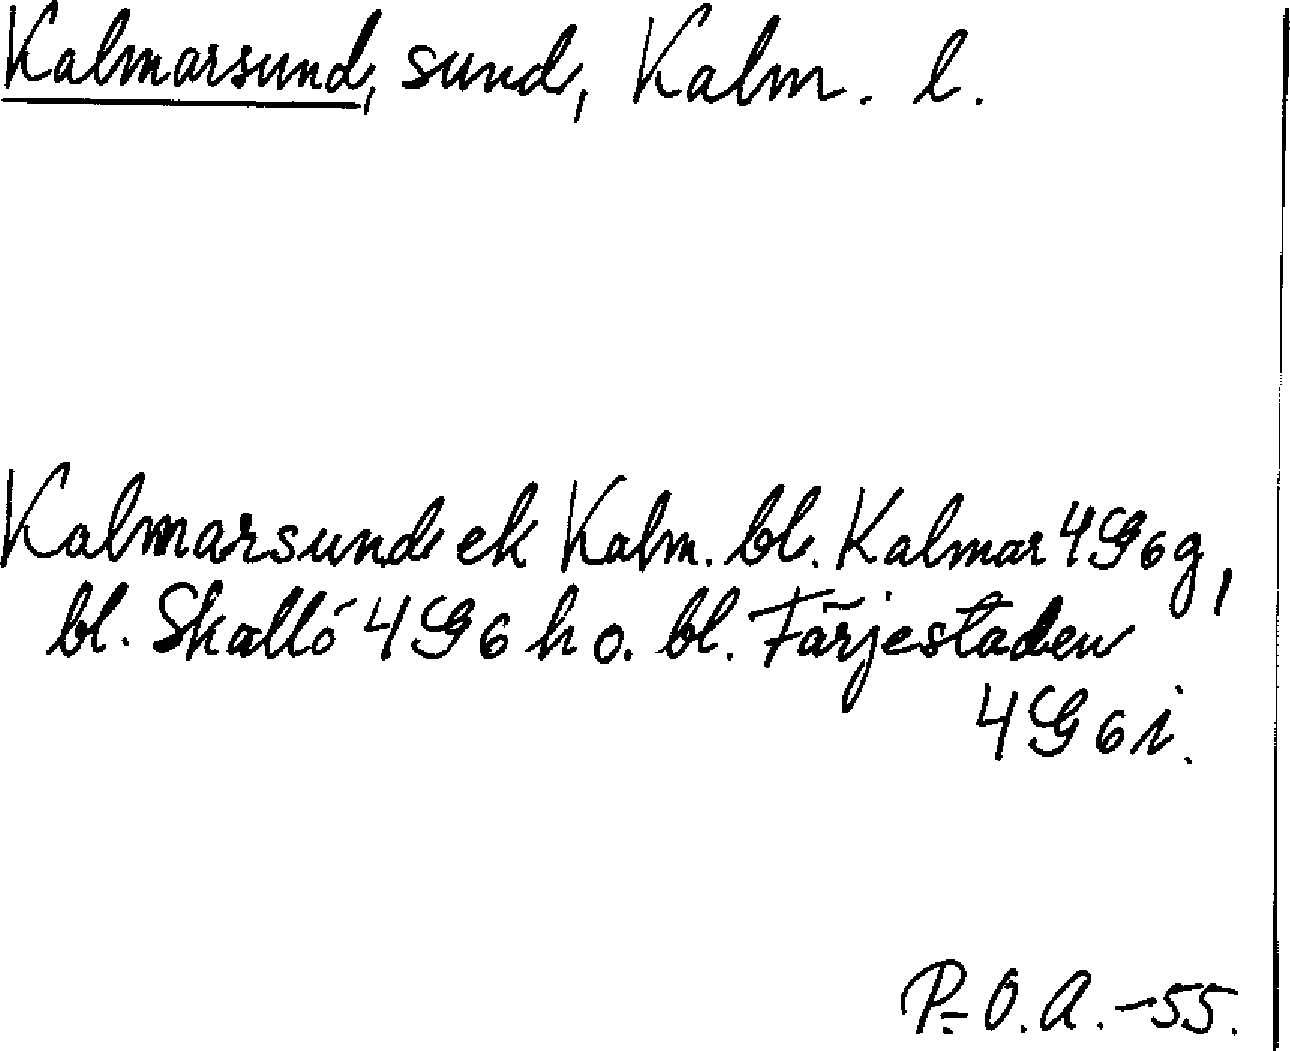 Kalmarsund, sund, Kalm. l.
Kalmarsund ek Kalm. bl. Kalmar 4G6g,
bl. Skallö 4G6h o. bl. Färjestaden
4G6i.
P.-O.A. -55.